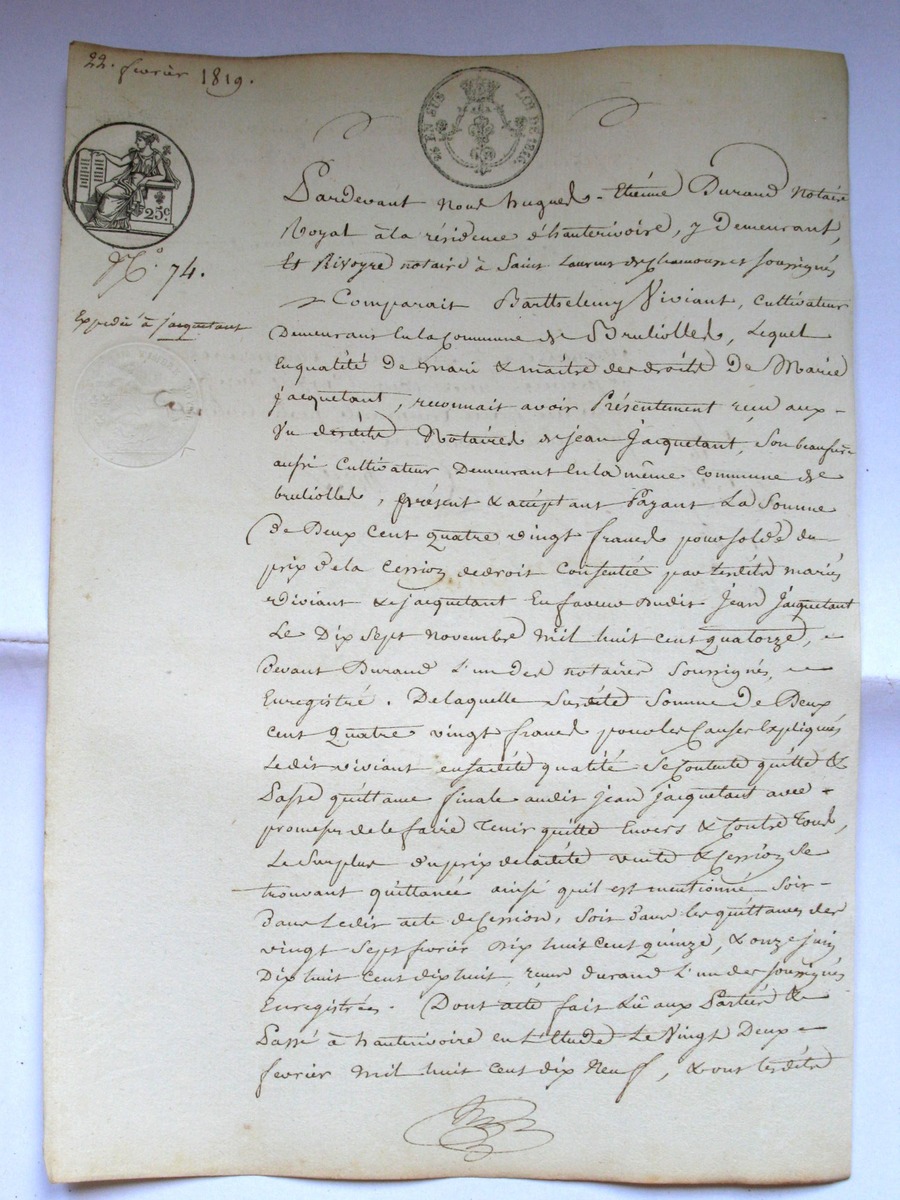 22. fevrier 1819.
25 EN SUS LOI DE 1816.
25c
N.° 74.
Expédié à jacquetant
Pardevant Nous hugues-Etienne Durand Notaire
Royal à la résidence d'hauterivoire, y Demeurant,
Et Rivoyre notaire à Saint Laurent de Chamousset soussignés
Comparait Barthelemy Viviant, Cultivateur
Demeurant En la Commune de Brullolles, Lequel
En qualité De mari & maitre des droits De Marie
jacquetant, reconnait avoir Présentement reçu aux
Vu desdits Notaires de jean Jacquetant, Son beaufrère
aussi Cultivateur Demeurant En la même Commune de
brullolles, présent & acceptant Payant La Somme
de Deux Cent quatre vingt francs pour solde du
prix de la Cession de droit Consentie par lesdits mariés
viviant & jacquetant En faveur dudit Jean Jacquetant
Le Dix Sept Novembre Mil huit Cent quatorze,
Devant Durand L'un des notaires Soussignés,
Enregistré. De laquelle Susdite Somme de Deux
Cent quatre vingt francs pour les Causes Expliqués
Ledit viviant en sadite qualité Se Contente quitte &
Passe quittance finale audit jean jacquetant avec
promesse de le faire Tenir quitte Envers & Contre Tous,
Le Surplus du prix de ladite vente & Cession Se
trouvant quittancé ainsi qu'il est mentionné Soit
Dans Ledit acte de Cession, Soit Dans les quittances des
vingt Sept fevrier Dix huit Cent quinze, & onze juin
Dix huit Cent dix huit, reçues durand L'un des soussignés
Enregistrées. Dont acte fait Lû aux Parties &
Passé à hauterivoire en L'Etude Le Vingt Deux
fevrier Mil huit Cent dix Neuf, & ont lesdits